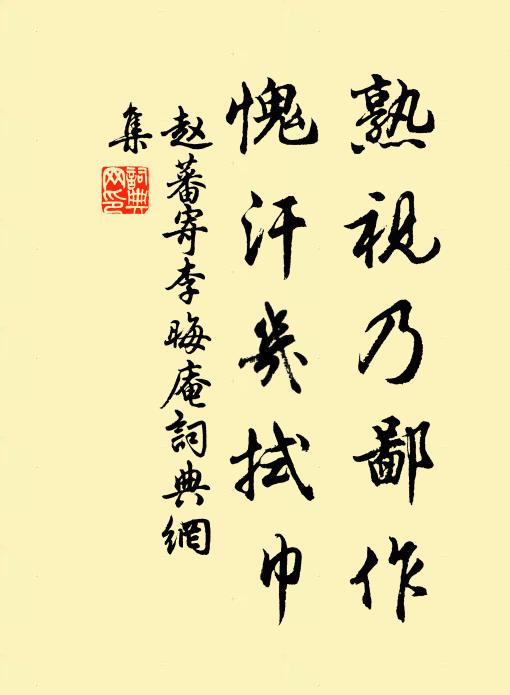 熟視乃鄙作
愧汗幾拭巾
赵蕃寄李晦庵詞典網
集
詞典
网印